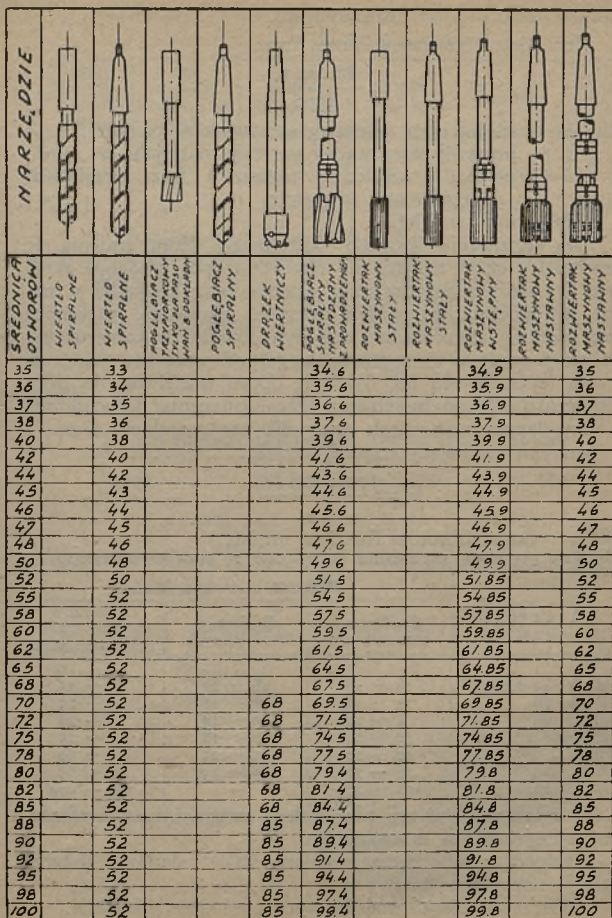 NARZĘDZIE
ŚREDNICA OTWORÓW
WIERTŁO SPIRALNE
WIERTŁO SPIRALNE
POGŁĘBIACZ TRZYPIÓRKOWY TYLKO DLA PASOWAŃ 8 DOKŁADN
POGŁĘBIACZ SPIRALNY
DRĄŻEK WIERTNICZY
POGŁĘBIACZ SPIRALNY NASADZANY Z PROWADZENIEM
ROZWIERTAK MASZYNOWY STAŁY
ROZWIERTAK MASZYNOWY STAŁY
ROZWIERTAK MASZYNOWY WSTĘPNY
ROZWIERTAK MASZYNOWY NASTAWNY
ROZWIERTAK MASZYNOWY NASTAWNY
35 33 34.6 34.9 35
36 34 35.6 35.9 36
37 35 36.6 36.9 37
38 36 37.6 37.9 38
40 38 39.6 39.9 40
42 40 41.6 41.9 42
44 42 43.6 43.9 44
45 43 44.6 44.9 45
46 44 45.6 45.9 46
47 45 46.6 46.9 47
48 46 47.6 47.9 48
50 48 49.6 49.9 50
52 50 51.5 51.85 52
55 52 54.5 54.85 55
58 52 57.5 57.85 58
60 52 59.5 59.85 60
62 52 61.5 61.85 62
65 52 64.5 64.85 65
68 52 67.5 67.85 68
70 52 68 69.5 69.85 70
72 52 68 71.5 71.85 72
75 52 68 74.5 74.85 75
78 52 68 77.5 77.85 78
80 52 68 79.4 79.8 80
82 52 68 81.4 81.8 82
85 52 68 84.4 84.8 85
88 52 85 87.4 87.8 88
90 52 85 89.4 89.8 90
92 52 85 91.4 91.8 92
95 52 85 94.4 94.8 95
98 52 85 97.4 97.8 98
100 52 85 99.4 99.8 100